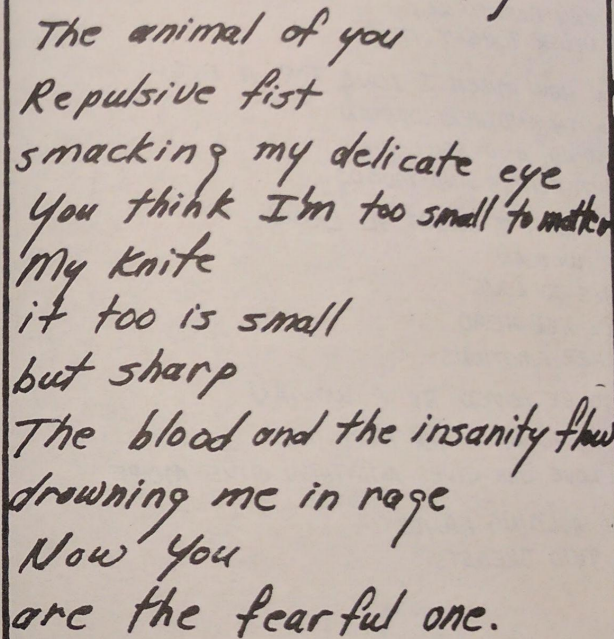 The animal of you
Repulsive fist
smacking my delicate eye
You think I'm too small to matter
My Knife
it too is small
but sharp
The blood and the insanity flow
drowning me in rage
Now You
are the fearful one.